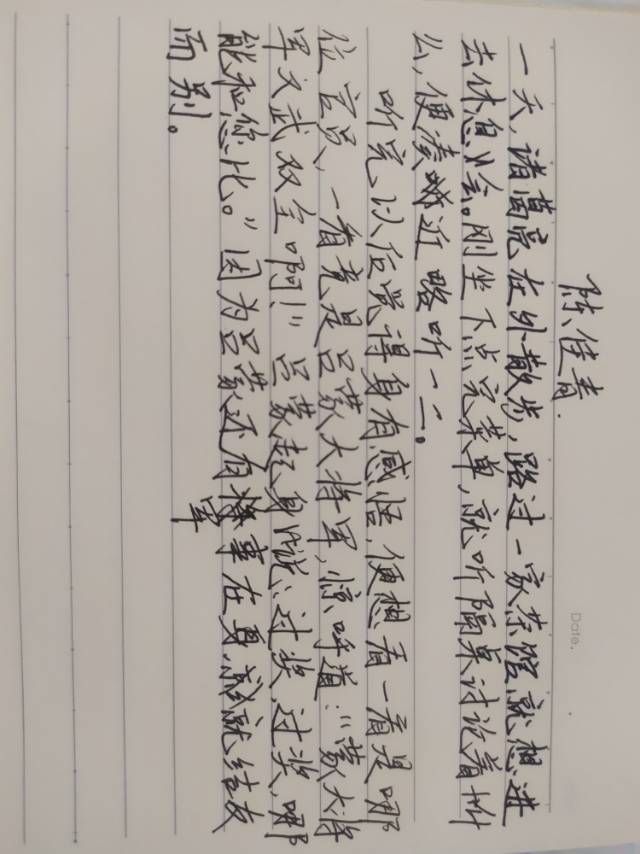 陈佳青.
Date.
一天,诸葛亮在外散步,路过一家茶馆就想进
去休息一会。刚坐下点完菜单,就听隔桌讨论着什
么,便凑近略听一二。
听完以后觉得身有感悟,便想看一看是哪
位官员,一看竟是吕蒙大将军,惊呼道:“蒙大将
军文武双全啊!”吕蒙起身说:过奖,过奖,哪
能和您比。”因为吕蒙还有军事在身,就结友
而别。